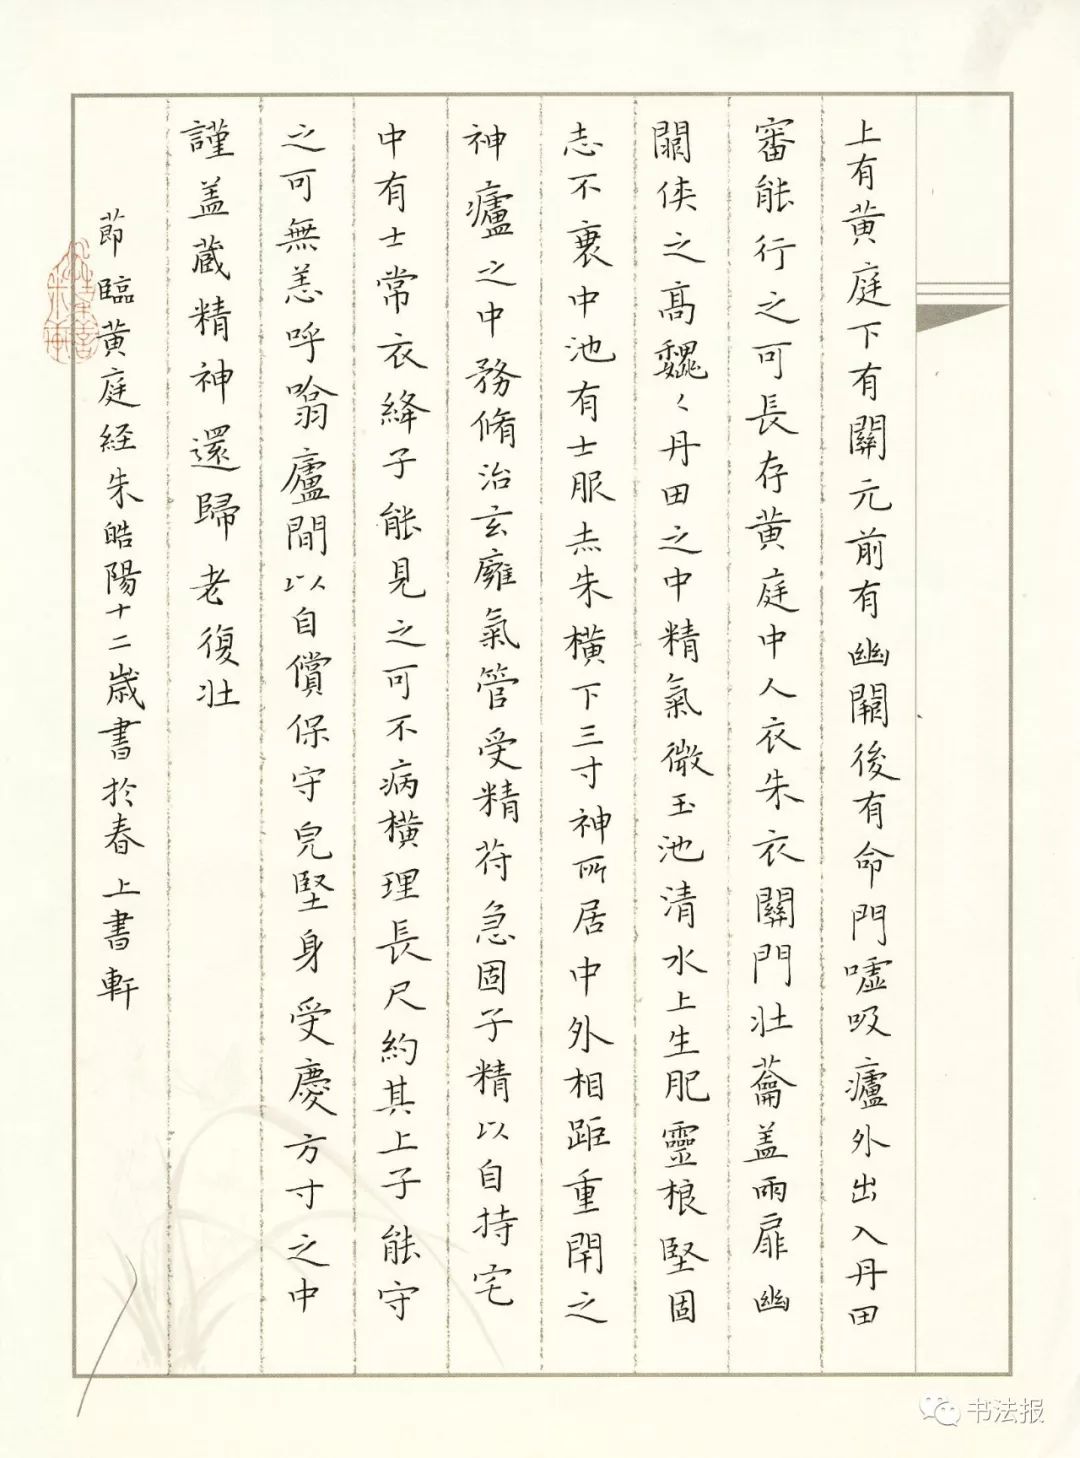 上有黃庭下有關元前有幽闕後有命門噓吸廬外出入丹田
審能行之可長存黃庭中人衣朱衣關門壯蘥盖兩扉幽
闕俠之高巍〻丹田之中精氣微玉池清水上生肥靈根堅固
志不衰中池有士服赤朱橫下三寸神所居中外相距重閇之
神廬之中務脩治玄癰氣管受精苻急固子精以自持宅
中有士常衣絳子能見之可不病橫理長尺約其上子能守
之可無恙呼噏廬間以自償保守皃堅身受慶方寸之中
謹盖藏精神還歸老復壯
節臨黃庭経朱皓陽十二歲書於春上書軒
书法报